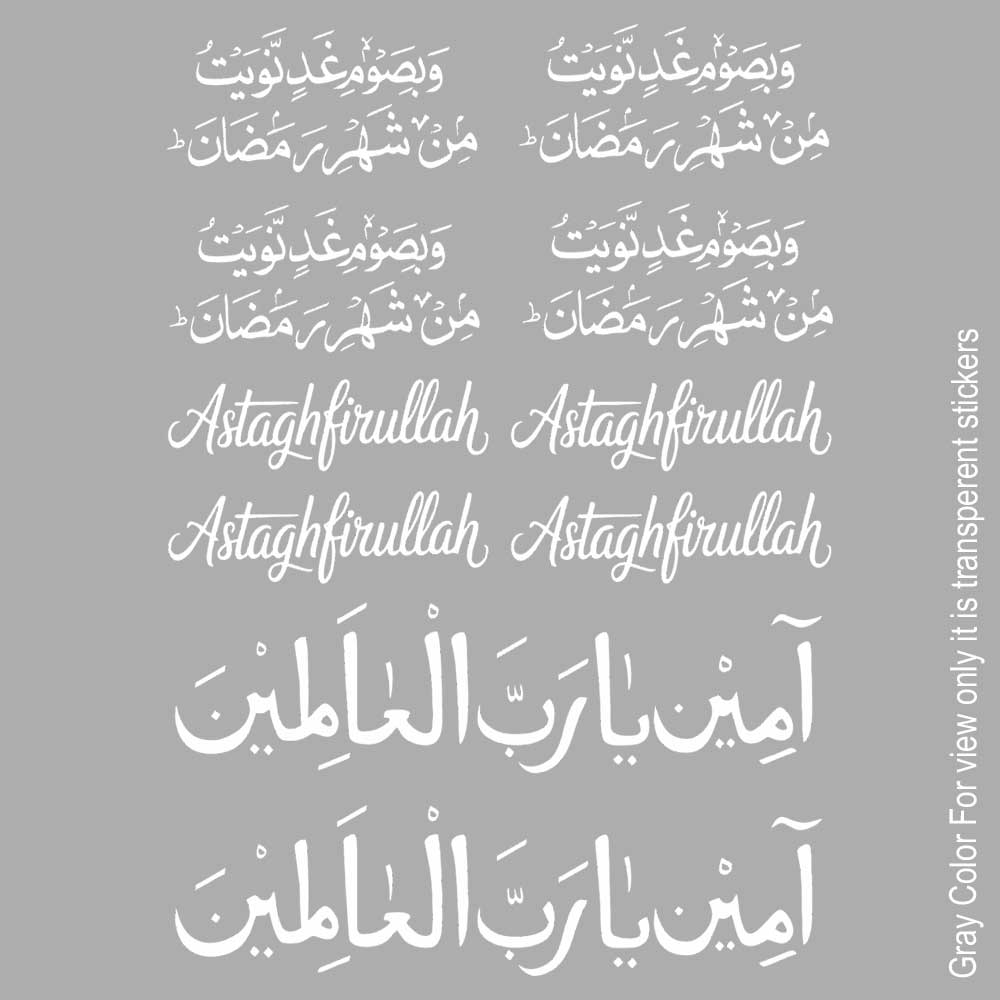 وَبِصَوْمِ غَدٍ نَّوَيْتُ
وَبِصَوْمِ غَدٍ نَّوَيْتُ
مِنْ شَهْرِ رَمَضَانَ ؕ
مِنْ شَهْرِ رَمَضَانَ ؕ
وَبِصَوْمِ غَدٍ نَّوَيْتُ
وَبِصَوْمِ غَدٍ نَّوَيْتُ
مِنْ شَهْرِ رَمَضَانَ ؕ
مِنْ شَهْرِ رَمَضَانَ ؕ
Astaghfirullah
Astaghfirullah
Astaghfirullah
Astaghfirullah
آمِيْن يَا رَبَّ الْعٰالَمِيْنَ
آمِيْن يَا رَبَّ الْعٰالَمِيْنَ
Gray Color For view only it is transperent stickers